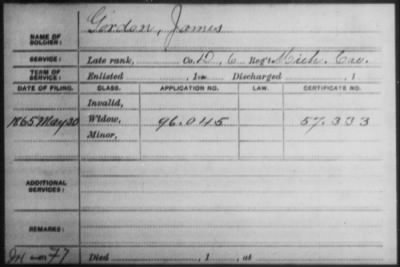 NAME OF SOLDIER: Gordon, James
SERVICE: Late rank, Co. D, 6 Reg't Mich. Cav.
TERM OF SERVICE: Enlisted , 1 Discharged , 1
DATE OF FILING. CLASS. APPLICATION NO. LAW. CERTIFICATE NO.
Invalid,
1865 May 20 Widow, 96.045 57.333
Minor,
ADDITIONAL SERVICES:
REMARKS:
77 Died , 1 , at